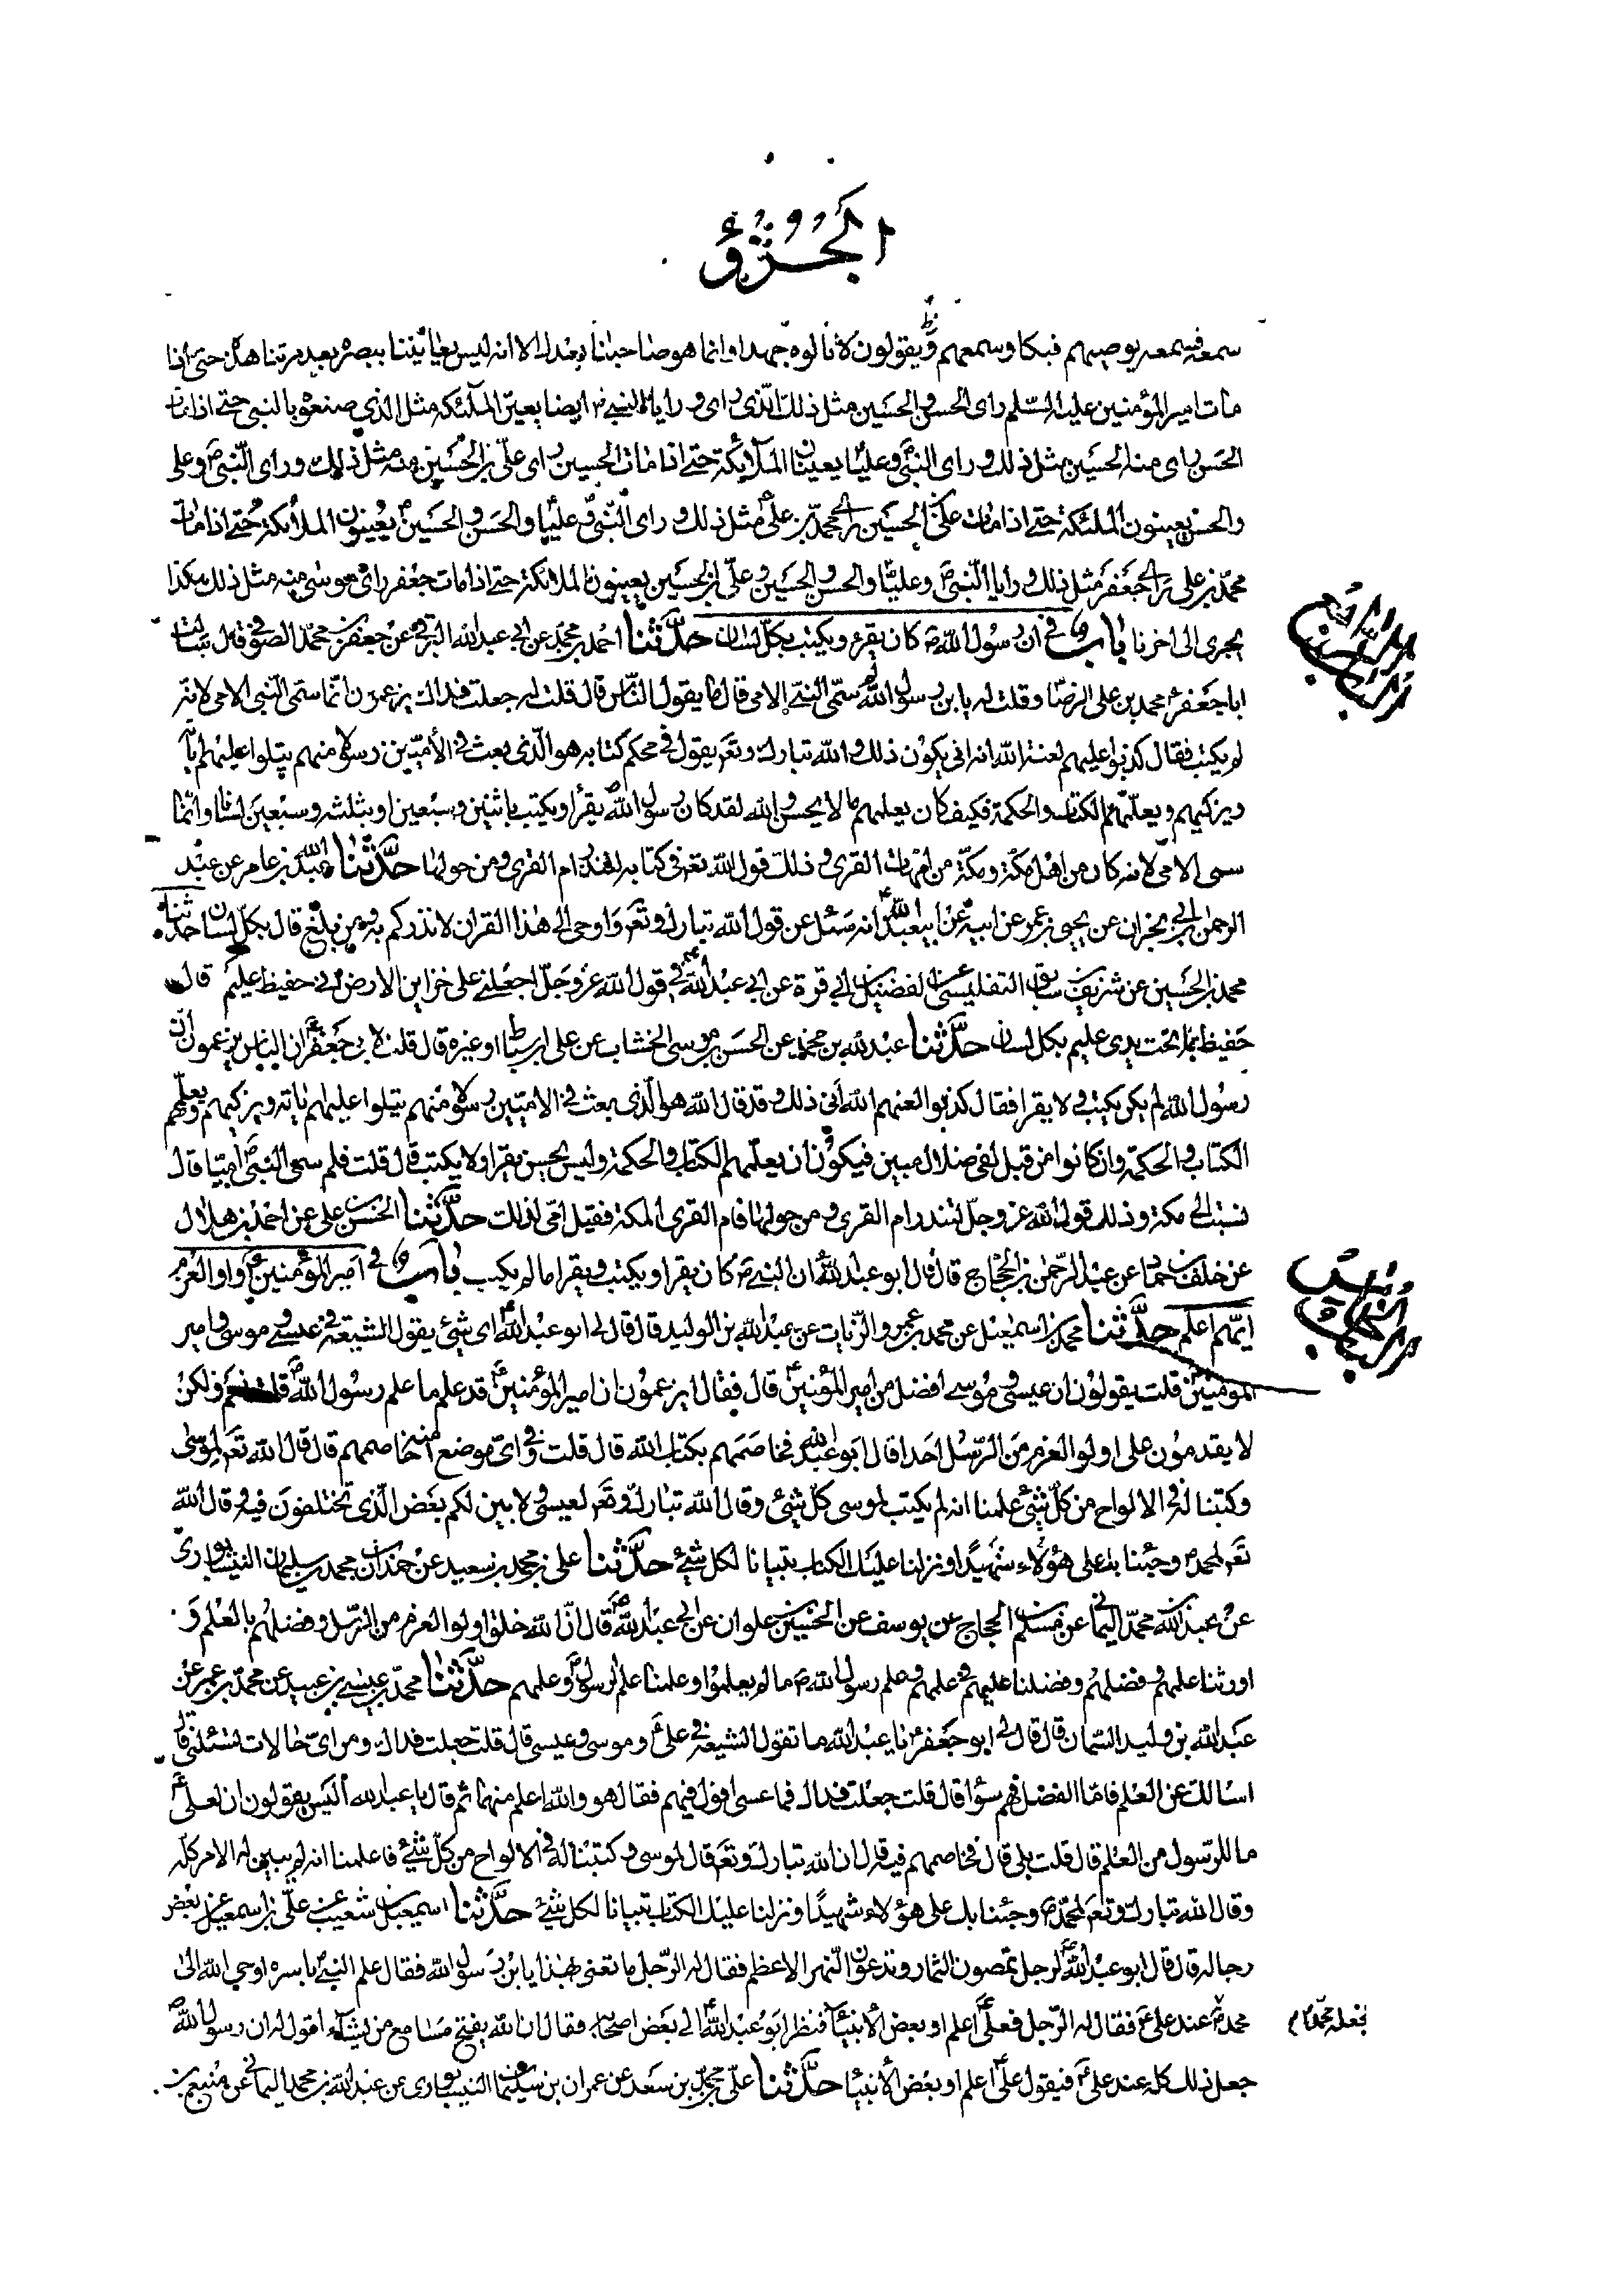 الجُزْؤُ
سمعه فسمعه يوصيهم فبكا وسمعهم ويقولون لا نالوه جهدا وانما هو صاحبنا بعدك الا انه ليس يعايننا ببصره بعد مرتنا هذه حتى اذا
مات امير المؤمنين عليه السّلم راى الحسن والحسين مثل ذلك الّذى راى ورايا النبى ايضا يعين الملئكة مثل الذى صنعوه بالنبى حتى اذا مات
الحسن راى منه الحسين مثل ذلك وراى النبى وعليّا يعينان الملائكة حتى اذا مات الحسين راى علىّ بن الحسين منه مثل ذلك وراى النّبى ص وعلى
والحسن يعينون الملئكة حتى اذا مات على بن الحسين راى محمّد بن على مثل ذلك وراى النّبى وعليّا والحسن والحسين يعينون الملائكة حتى اذا مات
محمّد بن على راى جعفر مثل ذلك ورايا النّبى ص وعليّا والحسن والحسين وعلىّ بن الحسين يعينون الملائكة حتى اذا مات جعفر راى موسى منه مثل ذلك هكذا
يجرى الى اخرنا باب فى ان رسول الله ص كان يقرء ويكتب بكلّ لسان حدّثنا احمد بن محمّد عن ابى عبد الله البرقى عن جعفر بن محمّد الصوفى قال سالت
ابا جعفر محمد بن على الرضا وقلت له يابن رسول الله لم سمّى النبى الامى قال ما يقول النّاس قال قلت له جعلت فداك يزعمون انّما سمّى النبى الامى لانه
لم يكتب فقال كذبوا عليهم لعنة الله انى يكون ذلك والله تبارك وتعالى يقول فى محكم كتابه هو الّذى بعث فى الأميّين رسولا منهم يتلوا عليهم اياته
ويزكيهم ويعلّمهم الكتاب والحكمة فكيف كان يعلمهم ما لا يحسن والله لقد كان رسول الله يقرأ ويكتب باثنين وسبعين او بثلثه وسبعين لسانا وانّما
سمى الامى لانه كان من اهل مكة ومكّة من امهات القرى وذلك قول الله تعالى فى كتابه لتنذر ام القرى ومن حولها حدّثنا عبد الله بن عامر عن عبد
الرحمن بن ابى نجران عن يحيى بن عمر عن ابيه عن ابى عبد الله انه سئل عن قول الله تبارك وتعالى واوحى الى هذا القران لانذركم به ومن بلغ قال بكلّ لسان حدّثنا
محمد بن الحسين عن شريف بن سابق التفليسى عن الفضل بن ابى قرة عن ابى عبد الله فى قول الله عزوجلّ اجعلنى على خزاين الارض انى حفيظ عليم قال
حفيظ بما تحت يدى عليم بكل لسان حدّثنا عبد الله بن محمد عن الحسن بن موسى الخشاب عن على بن اسباط او غيره قال قلت لابى جعفر ان الناس يزعمون انّ
رسول الله لم يكن يكتب ولا يقرا فقال كذبوا لعنهم الله انى ذلك وقد قال الله هو الّذى بعث فى الاميّين رسولا منهم يتلوا عليهم اياته ويزكيهم ويعلّمهم
الكتاب والحكمة وان كانوا من قبل لفى ضلال مبين فيكون ان يعلّمهم الكتاب والحكمة وليس يحسن يقرا ولا يكتب قال قلت فلم سمى النبى اميّا قال
نسبت الى مكة وذلك قول الله عزوجلّ لتنذر ام القرى ومن حولها فام القرى المكة فقيل امّى لذلك حدّثنا الحسن بن على عن احمد بن هلال
عن خلف بن حماد عن عبد الرحمن بن الحجّاج قال قال ابو عبد الله ان النبى ص كان يقرا ويكتب ويقرا ما لم يكتب باب فى امير المؤمنين واولو العزم
ايّهم اعلم حدّثنا محمد بن اسمعيل عن محمد بن عمرو الزّيات عن عبد الله بن الوليد قال قال لى ابو عبد الله اى شئ يقول الشيعة فى عيسى وموسى وامير
المؤمنين قلت يقولون ان عيسى وموسى افضل من امير المؤمنين قال فقال ايزعمون ان امير المؤمنين قد علم ما علم رسول الله قلت نعم ولكن
لا يقدمون على اولو العزم من الرّسل احدا قال ابو عبد الله فخاصمهم بكتاب الله قال قلت وفى اىّ موضع منه اخاصمهم قال قال الله تعالى لموسى
وكتبنا له فى الالواح من كلّ شئ علمنا انه لم يكتب لموسى كلّ شئ وقال الله تبارك وتعالى لعيسى ولابين لكم بعض الّذى تختلفون فيه وقال الله
تعالى لمحمد ص وجئنا بك على هؤلاء شهيدا ونزلنا عليك الكتاب تبيانا لكل شئ حدّثنا على بن محمد بن سعيد عن حمدان بن محمد بن سليمان النيشابورى
عن عبد الله بن محمّد اليمانى عن مسلم بن الحجاج عن يوسف عن الحسين بن علوان عن ابى عبد الله قال انّ الله خلق اولوا العزم من الرّسل وفضلهم بالعلم و
اورثنا علمهم وفضلهم وفضلنا عليهم فى علمهم وعلم رسول الله ص ما لم يعلموا وعلمنا علم الرسول وعلمهم حدّثنا محمّد بن عيسى بن عبيد عن محمّد بن عمر عن
عبد الله بن وليد السّمان قال قال لى ابو جعفر يا عبد الله ما تقول الشيعة فى على وموسى وعيسى قال قلت جعلت فداك ومن اىّ حالات تسئلنى قال
اسالك عن العلم فامّا الفضل فهم سوآ قال قلت جعلت فداك فما عسى اقول فيهم فقال هو والله اعلم منهما ثم قال يا عبد الله اليس يقولون ان لعلى
ما للرّسول من العلم قال قلت بلى قال فخاصمهم فيه قال ان الله تبارك وتعالى قال لموسى وكتبنا له فى الالواح من كلّ شئ فاعلمنا انه لم يبين له الامر كلّه
وقال الله تبارك وتعالى لمحمّد ص وجئنا بك على هؤلاء شهيدًا ونزلنا عليك الكتاب تبيانا لكل شئ حدّثنا اسمعيل بن شعيب عن علىّ بن اسمعيل عن بعض
رجاله قال قال ابو عبد الله لرجل تمصون الثمار وتدعون النّهر الاعظم فقال له الرّجل ما تعنى بهذا يابن رسول الله فقال علم النبى باسره اوحى الله الى
محمد ص عند على فقال له الرّجل فعلى اعلم او بعض الأنبيآ فنظر ابو عبد الله الى بعض اصحابه فقال ان الله يفتح مسامع من يشآء اقول له ان رسول الله
جعل ذلك كلّه عند على فيقول على اعلم او بعض الأنبيا حدّثنا علىّ بن محمّد بن سعد عن عمران بن سليمان النيسابورى عن عبد الله بن محمد اليمانى عن منيع بن
الباب الرابع
الباب الخامس
فجعله محمّد